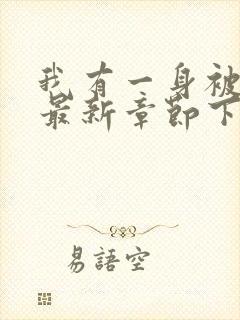 我有一身被
最新章节下
易語空